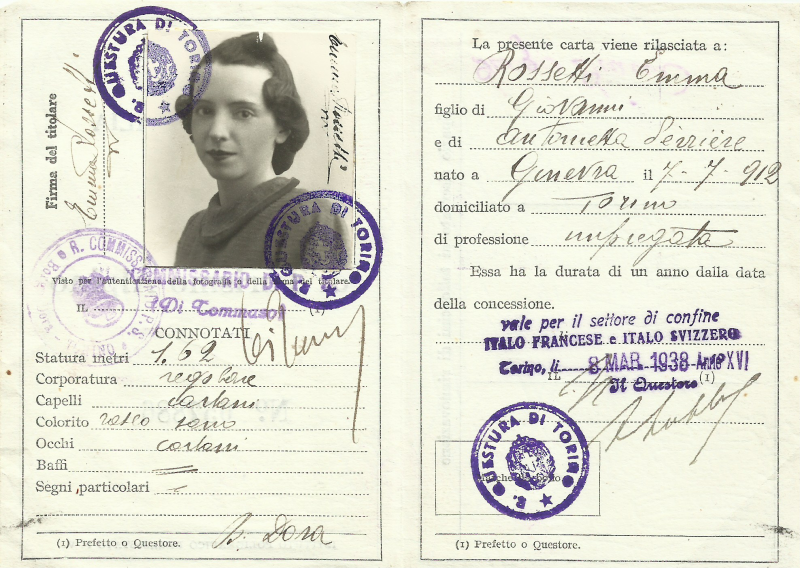 Firma del titolare
Emma Rossetti
R. QUESTURA DI TORINO
Emma Rossetti
R. QUESTURA DI TORINO
R. COMMISS
COMMISSARIO
Visto per l'autenticazione della fotografia e della firma del titolare.
Di Tommaso
IL (1)
CONNOTATI
Statura metri 1.62
Corporatura regolare
Capelli castani
Colorito roseo sano
Occhi castani
Baffi =
Segni particolari -
(1) Prefetto o Questore.
B. Dora
La presente carta viene rilasciata a:
Rossetti Emma
figlio di Giovanni
e di Antonietta Perrière
nato a Ginevra il 7-7-912
domiciliato a Torino
di professione impiegata
Essa ha la durata di un anno dalla data
della concessione.
vale per il settore di confine
ITALO FRANCESE e ITALO SVIZZERO
Torino, li 8 MAR. 1938 Anno XVI
IL (1)
Il Questore
R. QUESTURA DI TORINO
(1) Prefetto o Questore.